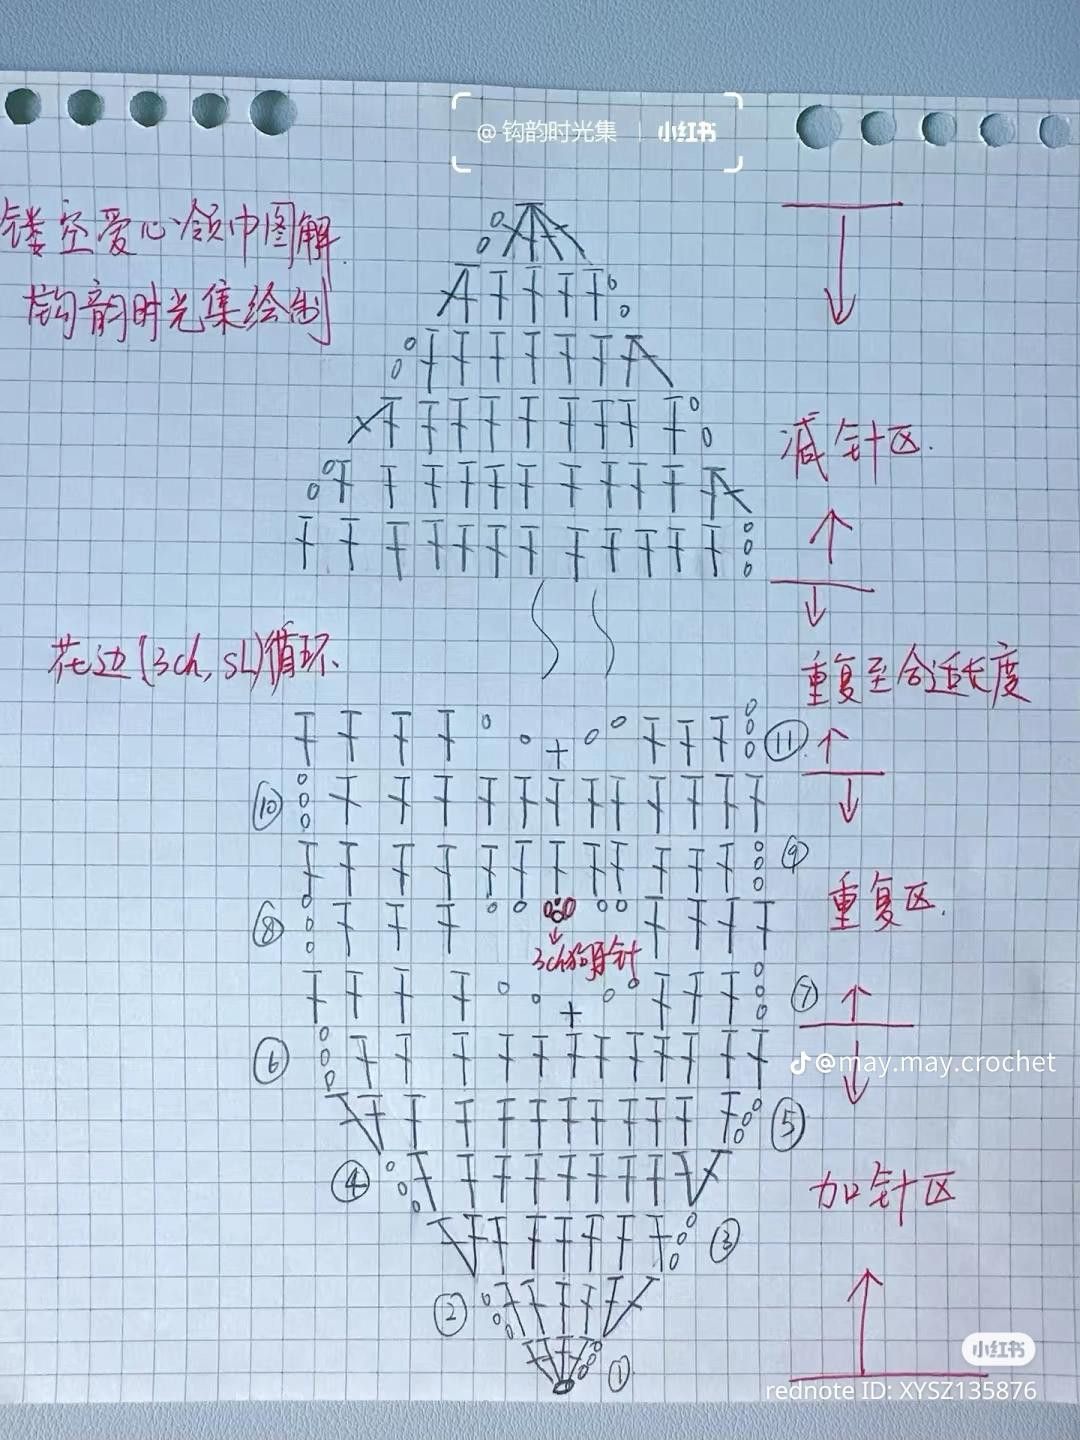 @钩韵时光集 | 小红书
镂空爱心领巾图解
钩韵时光集绘制
减针区.
花边(3ch,sl)循环.
重复至合适长度
⑪
⑩
⑨
重复区.
⑧
3ch狗牙针
⑦
⑥
@may.may.crochet
⑤
④
加针区
③
②
①
小红书
rednote ID: XYSZ135876